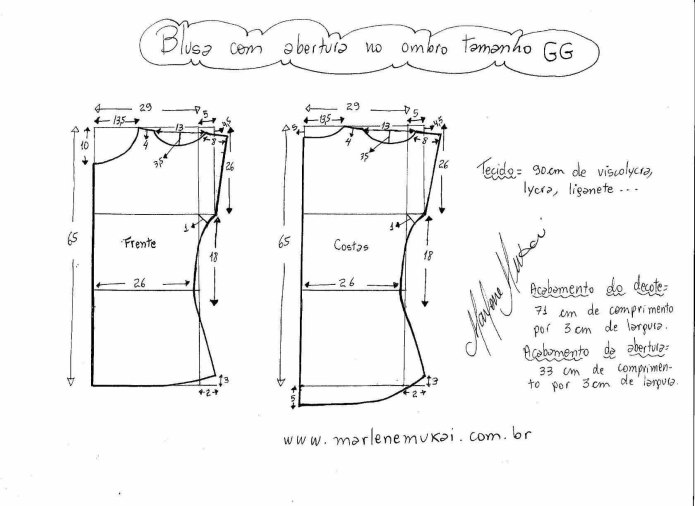 Blusa com abertura no ombro tamanho GG
29
5
13,5
13
4,5
10
4
3,5
8
26
65
Frente
1
18
26
3
2
29
5
13,5
13
4,5
5
4
3,5
8
26
65
Costas
1
18
26
3
2
5
Tecido= 90cm de viscolycra,
lycra, liganete ...
Marlene Mukai
Acabamento do decote=
71 cm de comprimento
por 3 cm de largura.
Acabamento da abertura=
33 cm de comprimen-
to por 3 cm de largura.
www.marlenemukai.com.br